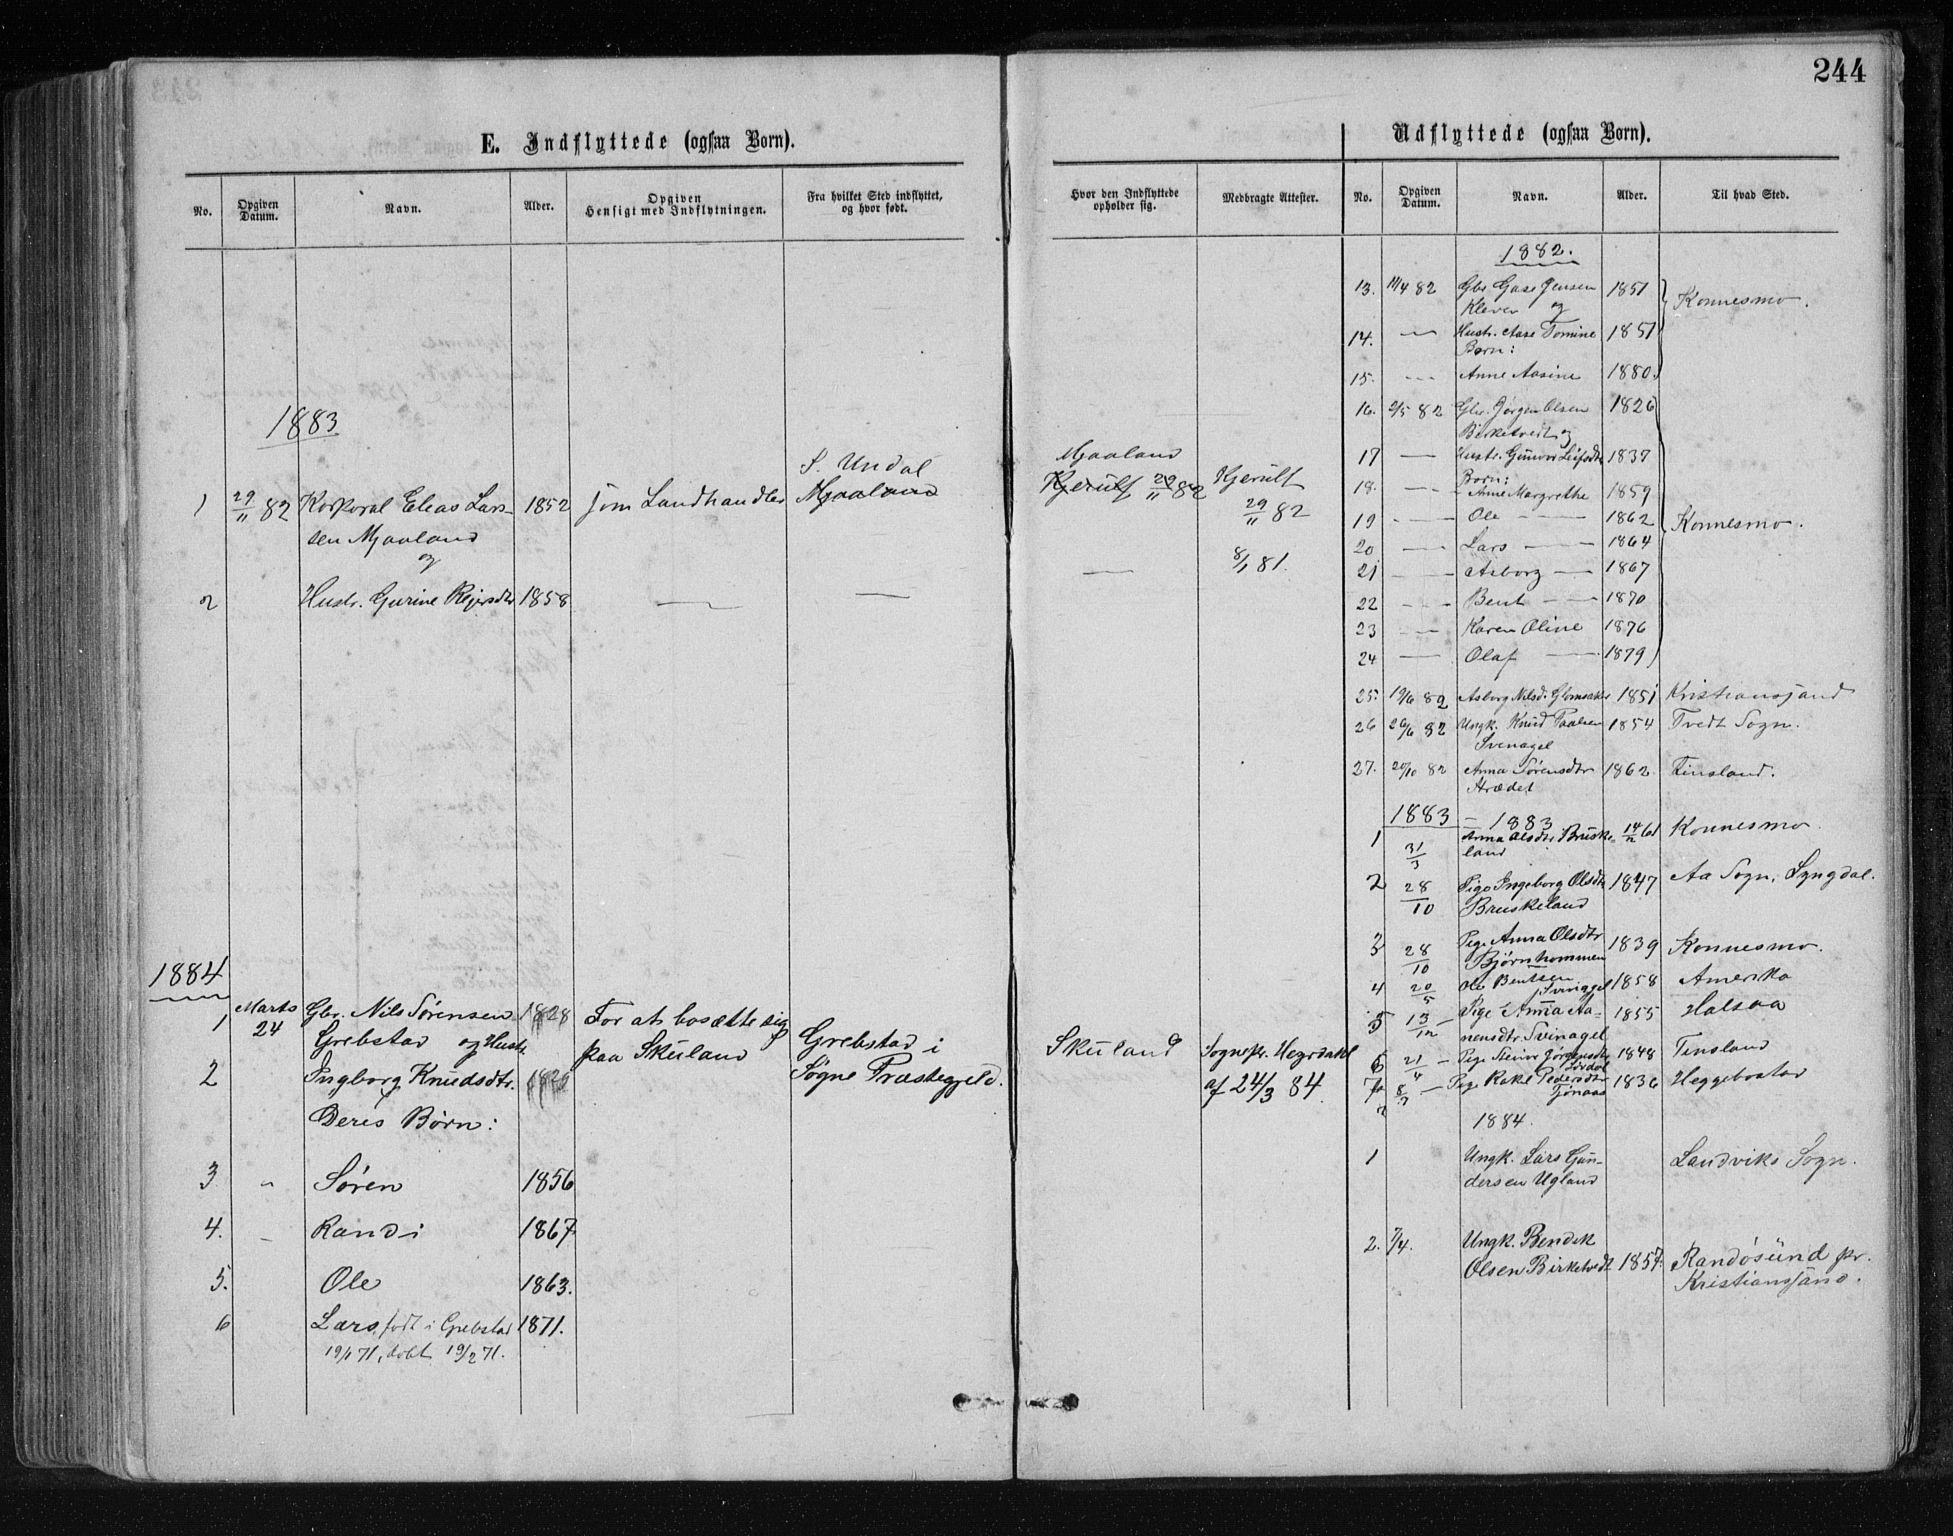 244
E. Indflyttede (ogsaa Børn).
No. Opgiven Datum. Navn. Alder. Opgiven Hensigt med Indflytningen. Fra hvilket Sted indflyttet, og hvor født.
1883
S. Undal
1 29/11 82 Korporal Elias Lar- 1852 som Landhandler Mjaaland
sen Mjaaland
og
2 Hustr. Gurine Rejersdtr 1858 — —
1884
1 Marts 24 Gbr. Nils Sørensen 1828 For at bosætte sig
Grebstad og Hustr. paa Skuland Grebstad i
2 Ingborg Knudsdtr. Søgne Præstegjeld.
Deres Børn:
3 " Søren 1856
4. - Randi 1867
5. Ole 1863.
6 Lars, født i Grebstad 1871.
19/1 71, døbt 19/2 71.
Hvor den Indflyttede opholder sig. Medbragte Attester.
Mjaaland
Kjerulf 29/11 82 Kjerulf
29/11 82
— 8/1 81.
Skuland Sognepr. Hegrdahl
af 24/3 84.
Udflyttede (ogsaa Børn).
No. Opgiven Datum. Navn. Alder. Til hvad Sted.
1882.
13. 11/4 82 Gbr Gase Jensen 1851 Konnesmo.
Kleven og
14. — Hustr. Aase Tomine 1851
Børn:
15. --- Anne Aasine 1880.
16. 2/5 82 Gbr. Jørgen Olsen 1826
Birketvedt og
17 — Hustr. Gunvor Leifsdtr 1837
Børn:
18. — Anne Margrethe 1859
19 --- Ole — 1862 Konnesmo.
20 — Lars — 1864
21 --- Asborg — 1867
22 --- Bent — 1870
23 --- Karen Oline 1876
24 — Olaf — 1879
25. 19/6 82 Asborg Nilsd. Glomsaker 1851 Kristianssand
26 26/6 82 Ungk. Knud Paalsen 1854 Tvedt Sogn.
Svinagel
27. 20/10 82 Anna Sørensdtr 1862 Finsland.
Strædet
1883 — 1883
1 31/3 Anna Olsdtr Bruske- 14/2 61 Konnesmo.
land
2 28/10 Pige Ingeborg Olsdtr 1847 Aa Sogn, Lyngdal.
Bruskeland
3 28/10 Pige Anna Olsdtr 1839 Konnesmo.
Bjørnhommen
4 20/5 Ole Bentsen 1858 Amerika
Svinagel
5 13/12 — Pige Anna Aa- 1855 Halsaa
nensdtr Svinagel
6 21/4 — Pige Jørgensdtr 1848 Finsland
7 8/7 — Pige Rakel Pedersdtr 1836 Heggebostad
Tjønaas
1884.
1 Ungk. Lars Gun- Landviks Sogn.
dersen Ugland
2. 7/4. Ungk. Bendik
Olsen Birketvedt 1857. Randøsund pr.
Kristianssand.